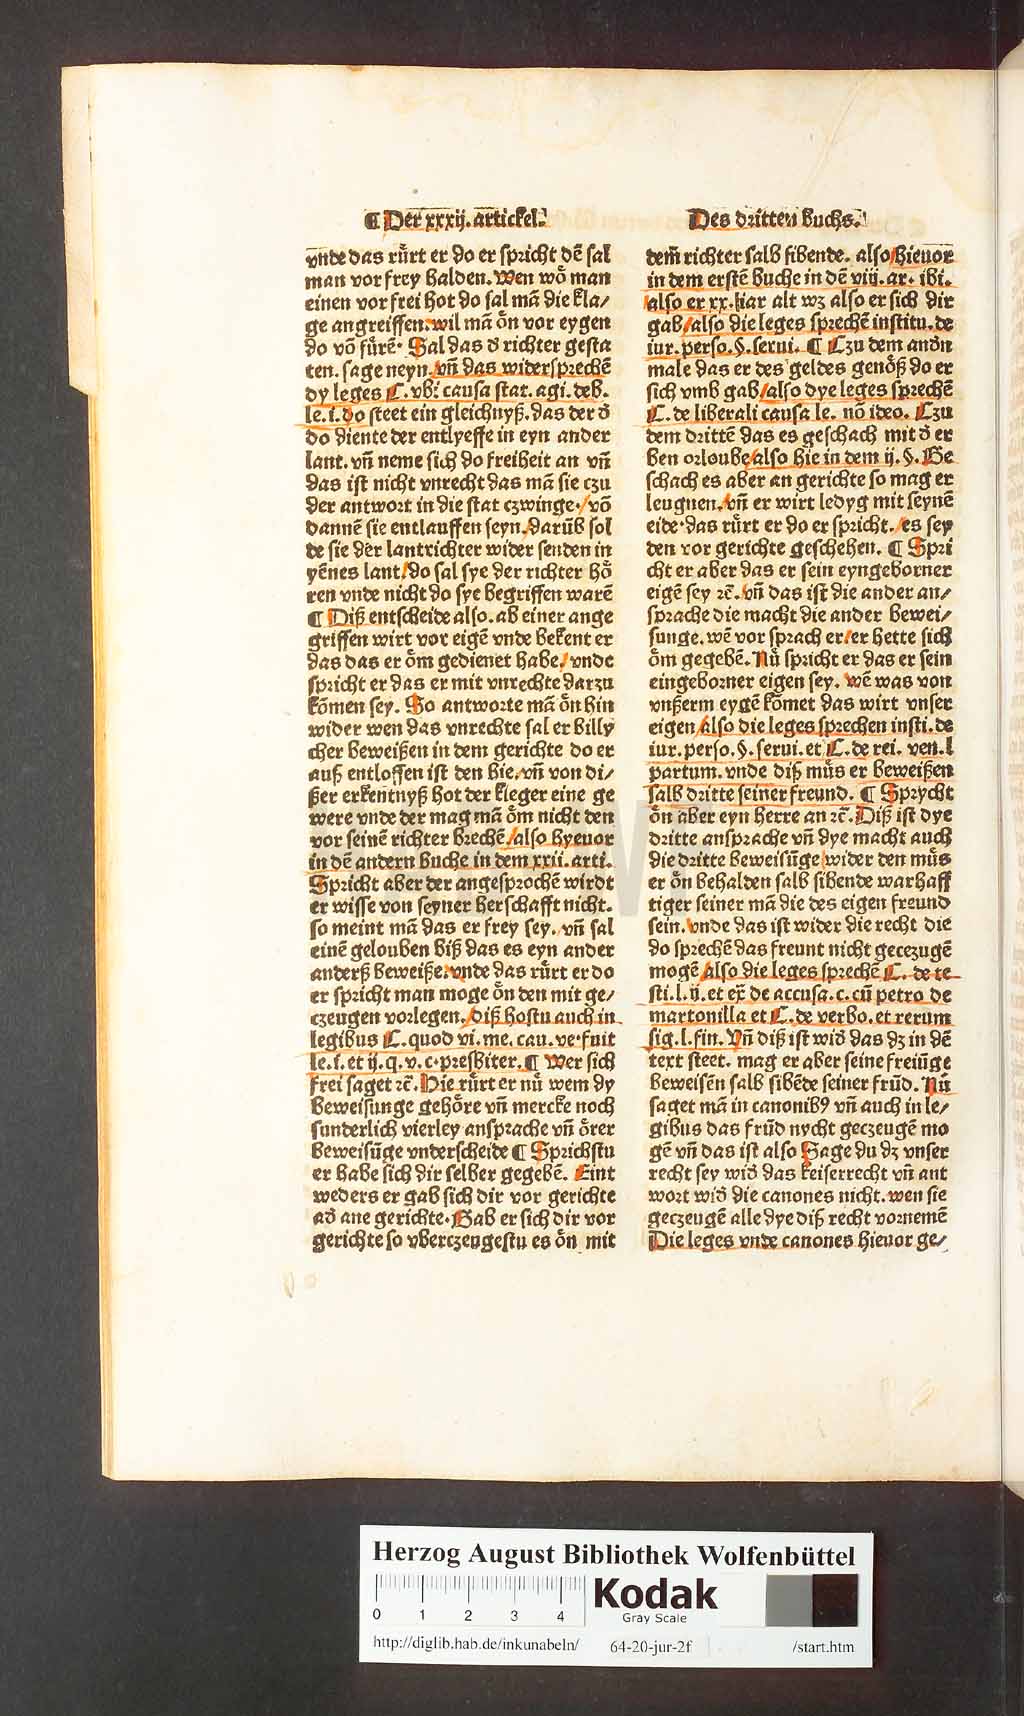 ¶ Der xxxij. artickel.
Des dritten buchs.
vnde das růrt er do er spricht dē sal
man vor frey halden. Wen wo man
einen vor frei hot do sal mā die kla/
ge angreiffen. wil mā ön vor eygen
do vō fürē. Sal das d̄ richter gesta
ten. sage neyn. vn̄ das widersprechē
dy leges C. vbi causa stat. agi. deb.
le. i. do steet ein gleichnyß. das der d̄
do diente der entlyeffe in eyn ander
lant. vn̄ neme sich do freiheit an vn̄
das ist nicht vnrecht das mā sie czu
der antwort in die stat czwinge./ vō
dannē sie entlauffen seyn. darūb sol
de sie der lantrichter wider senden in
yēnes lant. do sal sye der richter hö
ren vnde nicht do sye begriffen warē
¶ Diß entscheide also. ab einer ange
griffen wirt vor eigē vnde bekent er
das das er öm gedienet habe/ vnde
spricht er das er mit vnrechte darzu
kömen sey. So antworte mā ön hin
wider wen das vnrechte sal er billy
cher beweißen in dem gerichte do er
auß entloffen ist den hie. vn̄ von di/
ßer erkentnyß hot der kleger eine ge
were vnde der mag mā öm nicht den
vor seinē richter brechē/ also hyeuor
in dē andern buche in dem xxii. arti.
Spricht aber der angesprochē wirdt
er wisse von seyner herschafft nicht.
so meint mā das er frey sey. vn̄ sal
einē gelouben biß das es eyn ander
anderß beweiße. vnde das růrt er do
er spricht man moge ön den mit ge/
czeugen vorlegen. diß hostu auch in
legibus C. quod vi. me. cau. ve. fuit
le. i. et ij. q. v. c. presbiter. ¶ Wer sich
frei saget ꝛc̄. Hie růrt er nů wem dy
beweisunge gehöre vn̄ mercke noch
sunderlich vierley ansprache vn̄ örer
beweisūge vnderscheide ¶ Sprichstu
er habe sich dir selber gegebē. Eint
weders er gab sich dir vor gerichte
ad̄ ane gerichte. Gab er sich dir vor
gerichte so vberczeugestu es ön mit
dem̄ richter salb sibende. also/ hieuor
in dem erstē buche in dē viij. ar. ibi.
/also er xx. iar alt wz also er sich dir
gab/ also die leges sprechē institu. de
iur. perso. §. serui. ¶ Czu dem andn̄
male das er des geldes genöß do er
sich vmb gab/ also dye leges sprechē
C. de liberali causa le. nō ideo. Czu
dem drittē das es geschach mit d̄ er
ben orloube/ also hie in dem ij. §. Ge
schach es aber an gerichte so mag er
leugnen. vn̄ er wirt ledyg mit seynē
eide. das růrt er do er spricht./ es sey
den vor gerichte geschehen. ¶ Spri
cht er aber das er sein eyngeborner
eigē sey ꝛc̄. vn̄ das ist die ander an/
sprache die macht die ander bewei/
sunge. wē vor sprach er/ er hette sich
öm gegebē. Nů spricht er das er sein
eingeborner eigen sey. wē was von
vnßerm eygē kömet das wirt vnser
eigen/ also die leges sprechen insti. de
iur. perso. §. serui. et C. de rei. ven. l
partum. vnde diß můs er beweißen
salb dritte seiner freund. ¶ Sprycht
ön aber eyn herre an ꝛc̄. Diß ist dye
dritte ansprache vn̄ dye macht auch
die dritte beweisūge wider den můs
er ön behalden salb sibende warhaff
tiger seiner mā die des eigen freund
sein. vnde das ist wider die recht die
do sprechē das freunt nicht geczeugē
mogē/ also die leges sprechē C. de te
sti. l. ij. et ex̄ de accusa. c. cū petro de
martonilla et C. de verbo. et rerum
sig. l. fin. Vn̄ diß ist wid̄ das dz in dē
text steet. mag er aber seine freiūge
beweisēn salb sibēde seiner frūd. Nů
saget mā in canonibꝰ vn̄ auch in le/
gibus das frūd nycht geczeugē mo
gē vn̄ das ist also Sage du dz vnser
recht sey wid̄ das keiserrecht vn̄ ant
wort wid̄ die canones nicht. wen sie
geczeugē alle dye diß recht vornemē
Die leges vnde canones hieuor ge/
Herzog August Bibliothek Wolfenbüttel
0 1 2 3 4
Kodak
Gray Scale
http://diglib.hab.de/inkunabeln/ 64-20-jur-2f /start.htm
HAB